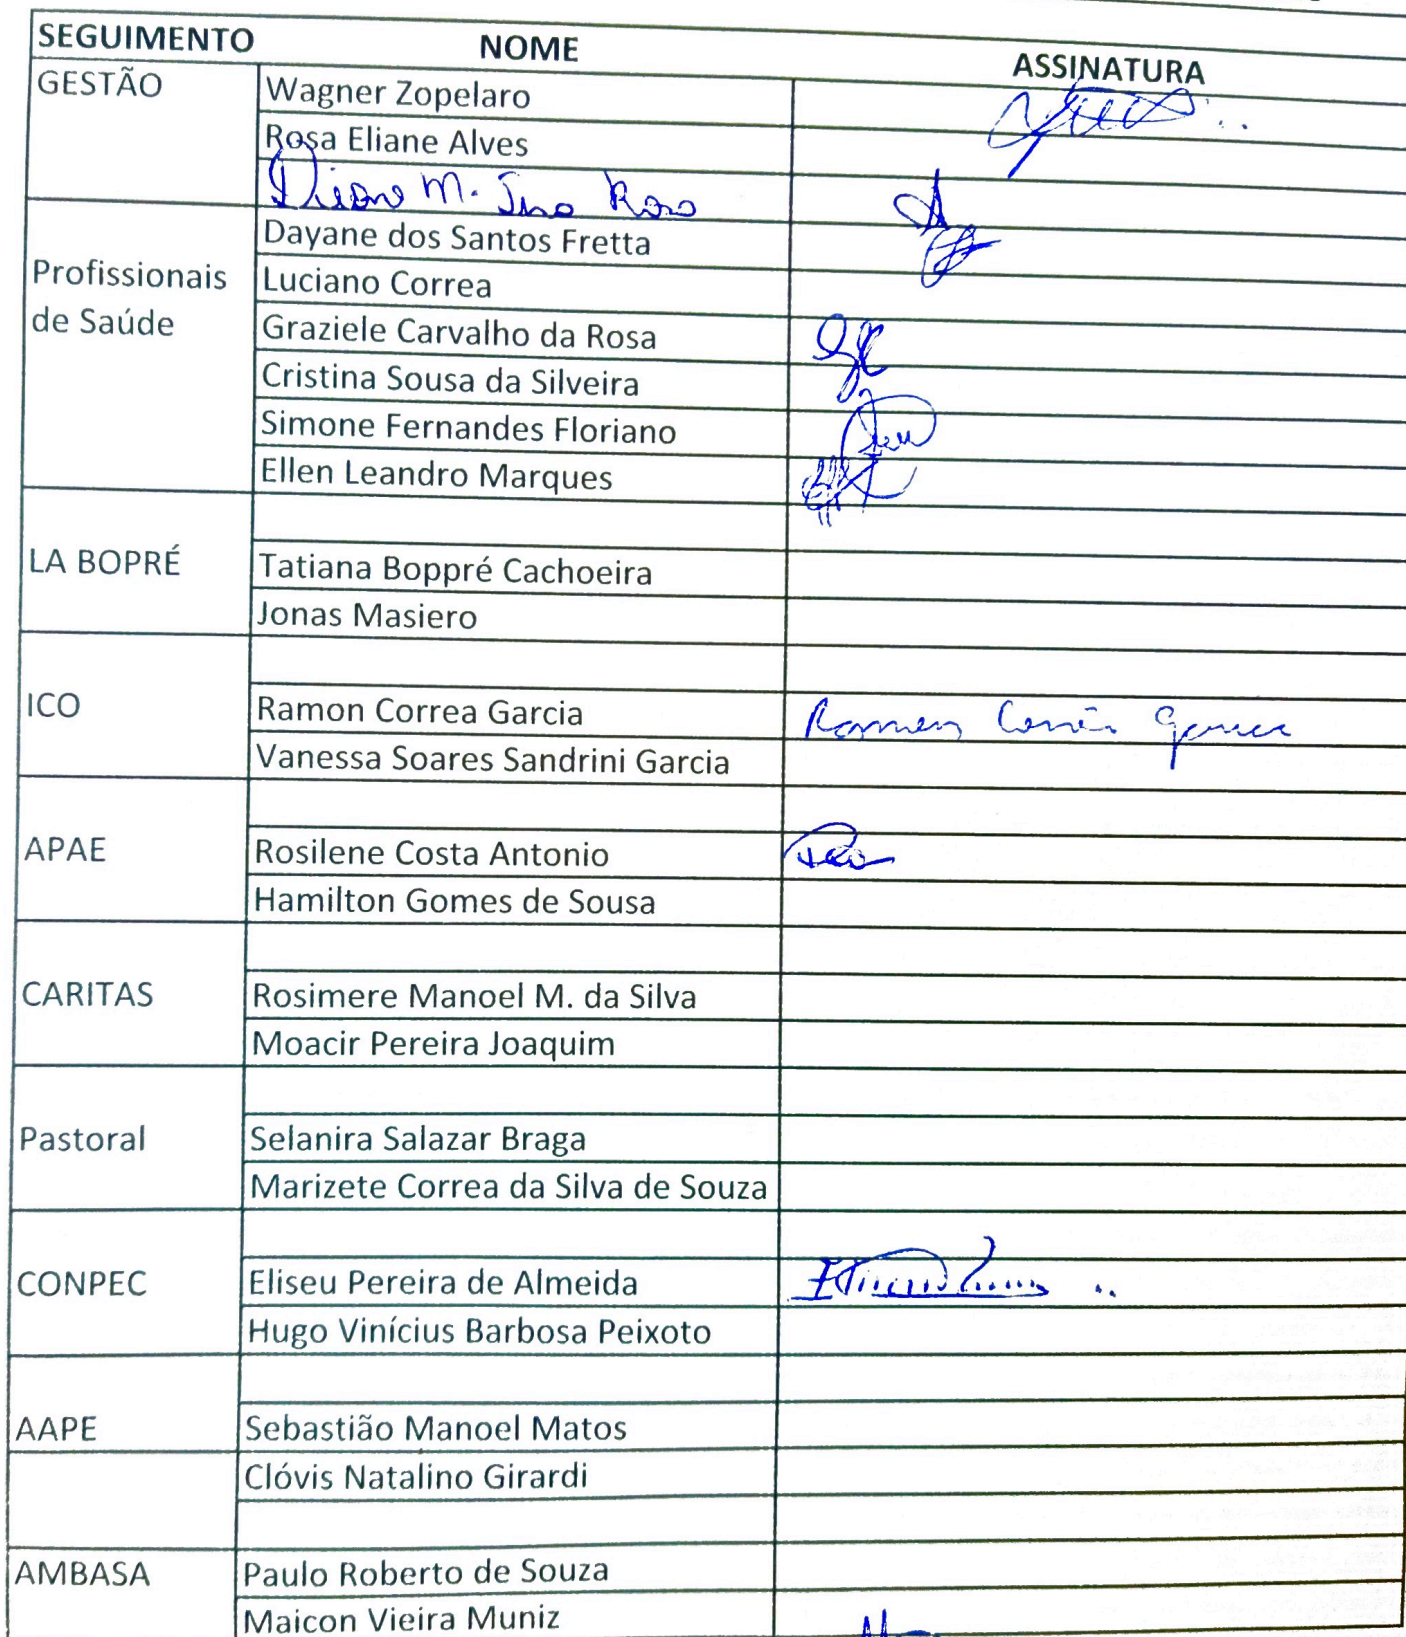 SEGUIMENTO NOME ASSINATURA
GESTÃO Wagner Zopelaro
Rosa Eliane Alves
M. Rosa
Dayane dos Santos Fretta
Profissionais Luciano Correa
de Saúde Graziele Carvalho da Rosa
Cristina Sousa da Silveira
Simone Fernandes Floriano
Ellen Leandro Marques
LA BOPRÉ Tatiana Boppré Cachoeira
Jonas Masiero
ICO Ramon Correa Garcia Ramon Corrêa Garcia
Vanessa Soares Sandrini Garcia
APAE Rosilene Costa Antonio
Hamilton Gomes de Sousa
CARITAS Rosimere Manoel M. da Silva
Moacir Pereira Joaquim
Pastoral Selanira Salazar Braga
Marizete Correa da Silva de Souza
CONPEC Eliseu Pereira de Almeida
Hugo Vinícius Barbosa Peixoto
AAPE Sebastião Manoel Matos
Clóvis Natalino Girardi
AMBASA Paulo Roberto de Souza
Maicon Vieira Muniz